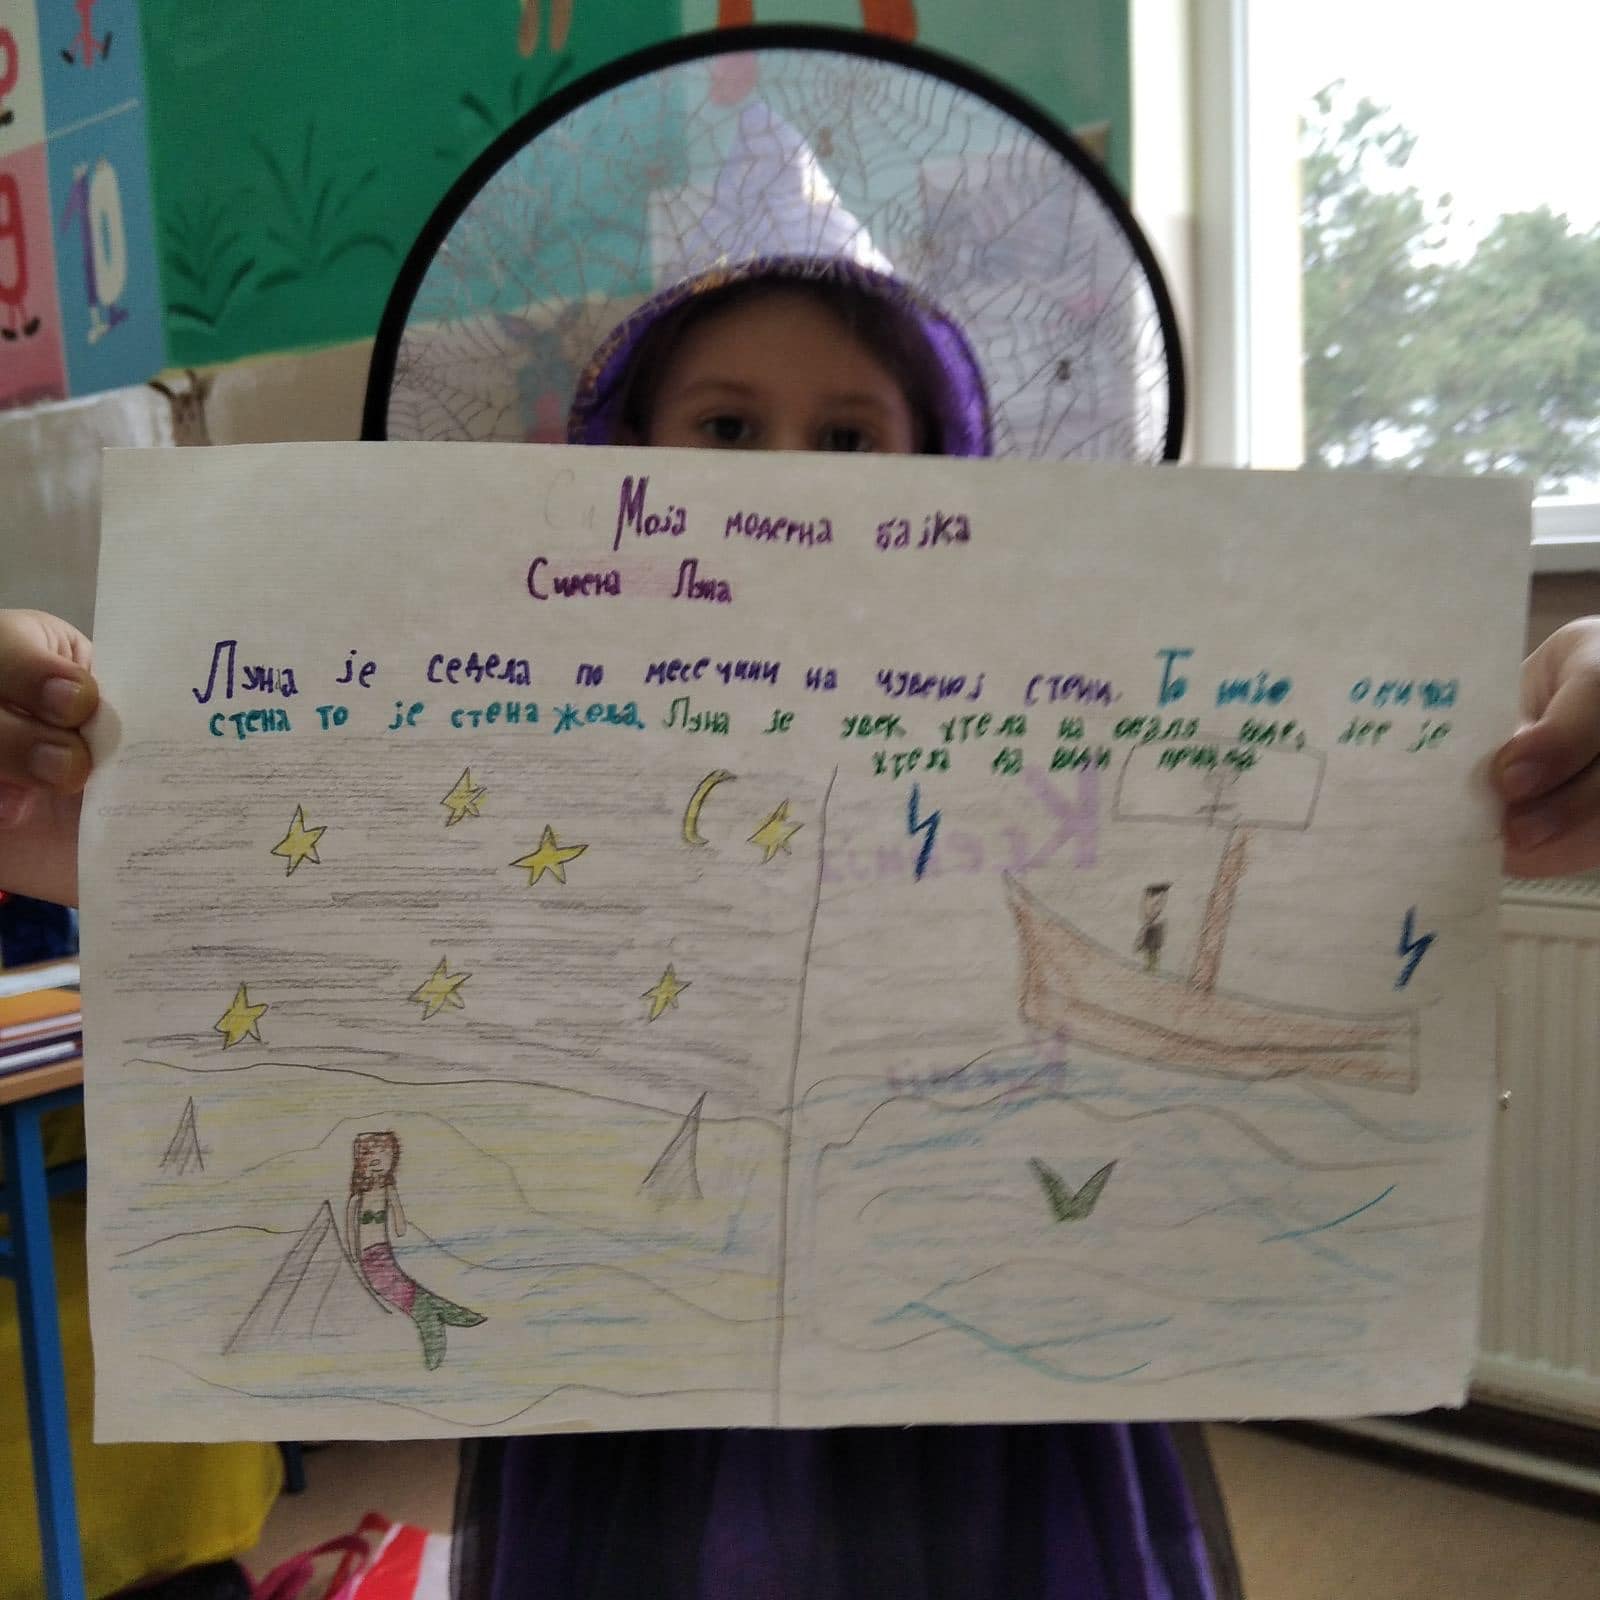 Моја модерна бајка
Сирена Луна
Луна је седела по месечини на чувеној стени. То није обична
стена то је стена жеља. Луна је увек хтела на обалу оде, јер је
хтела да види принца
10